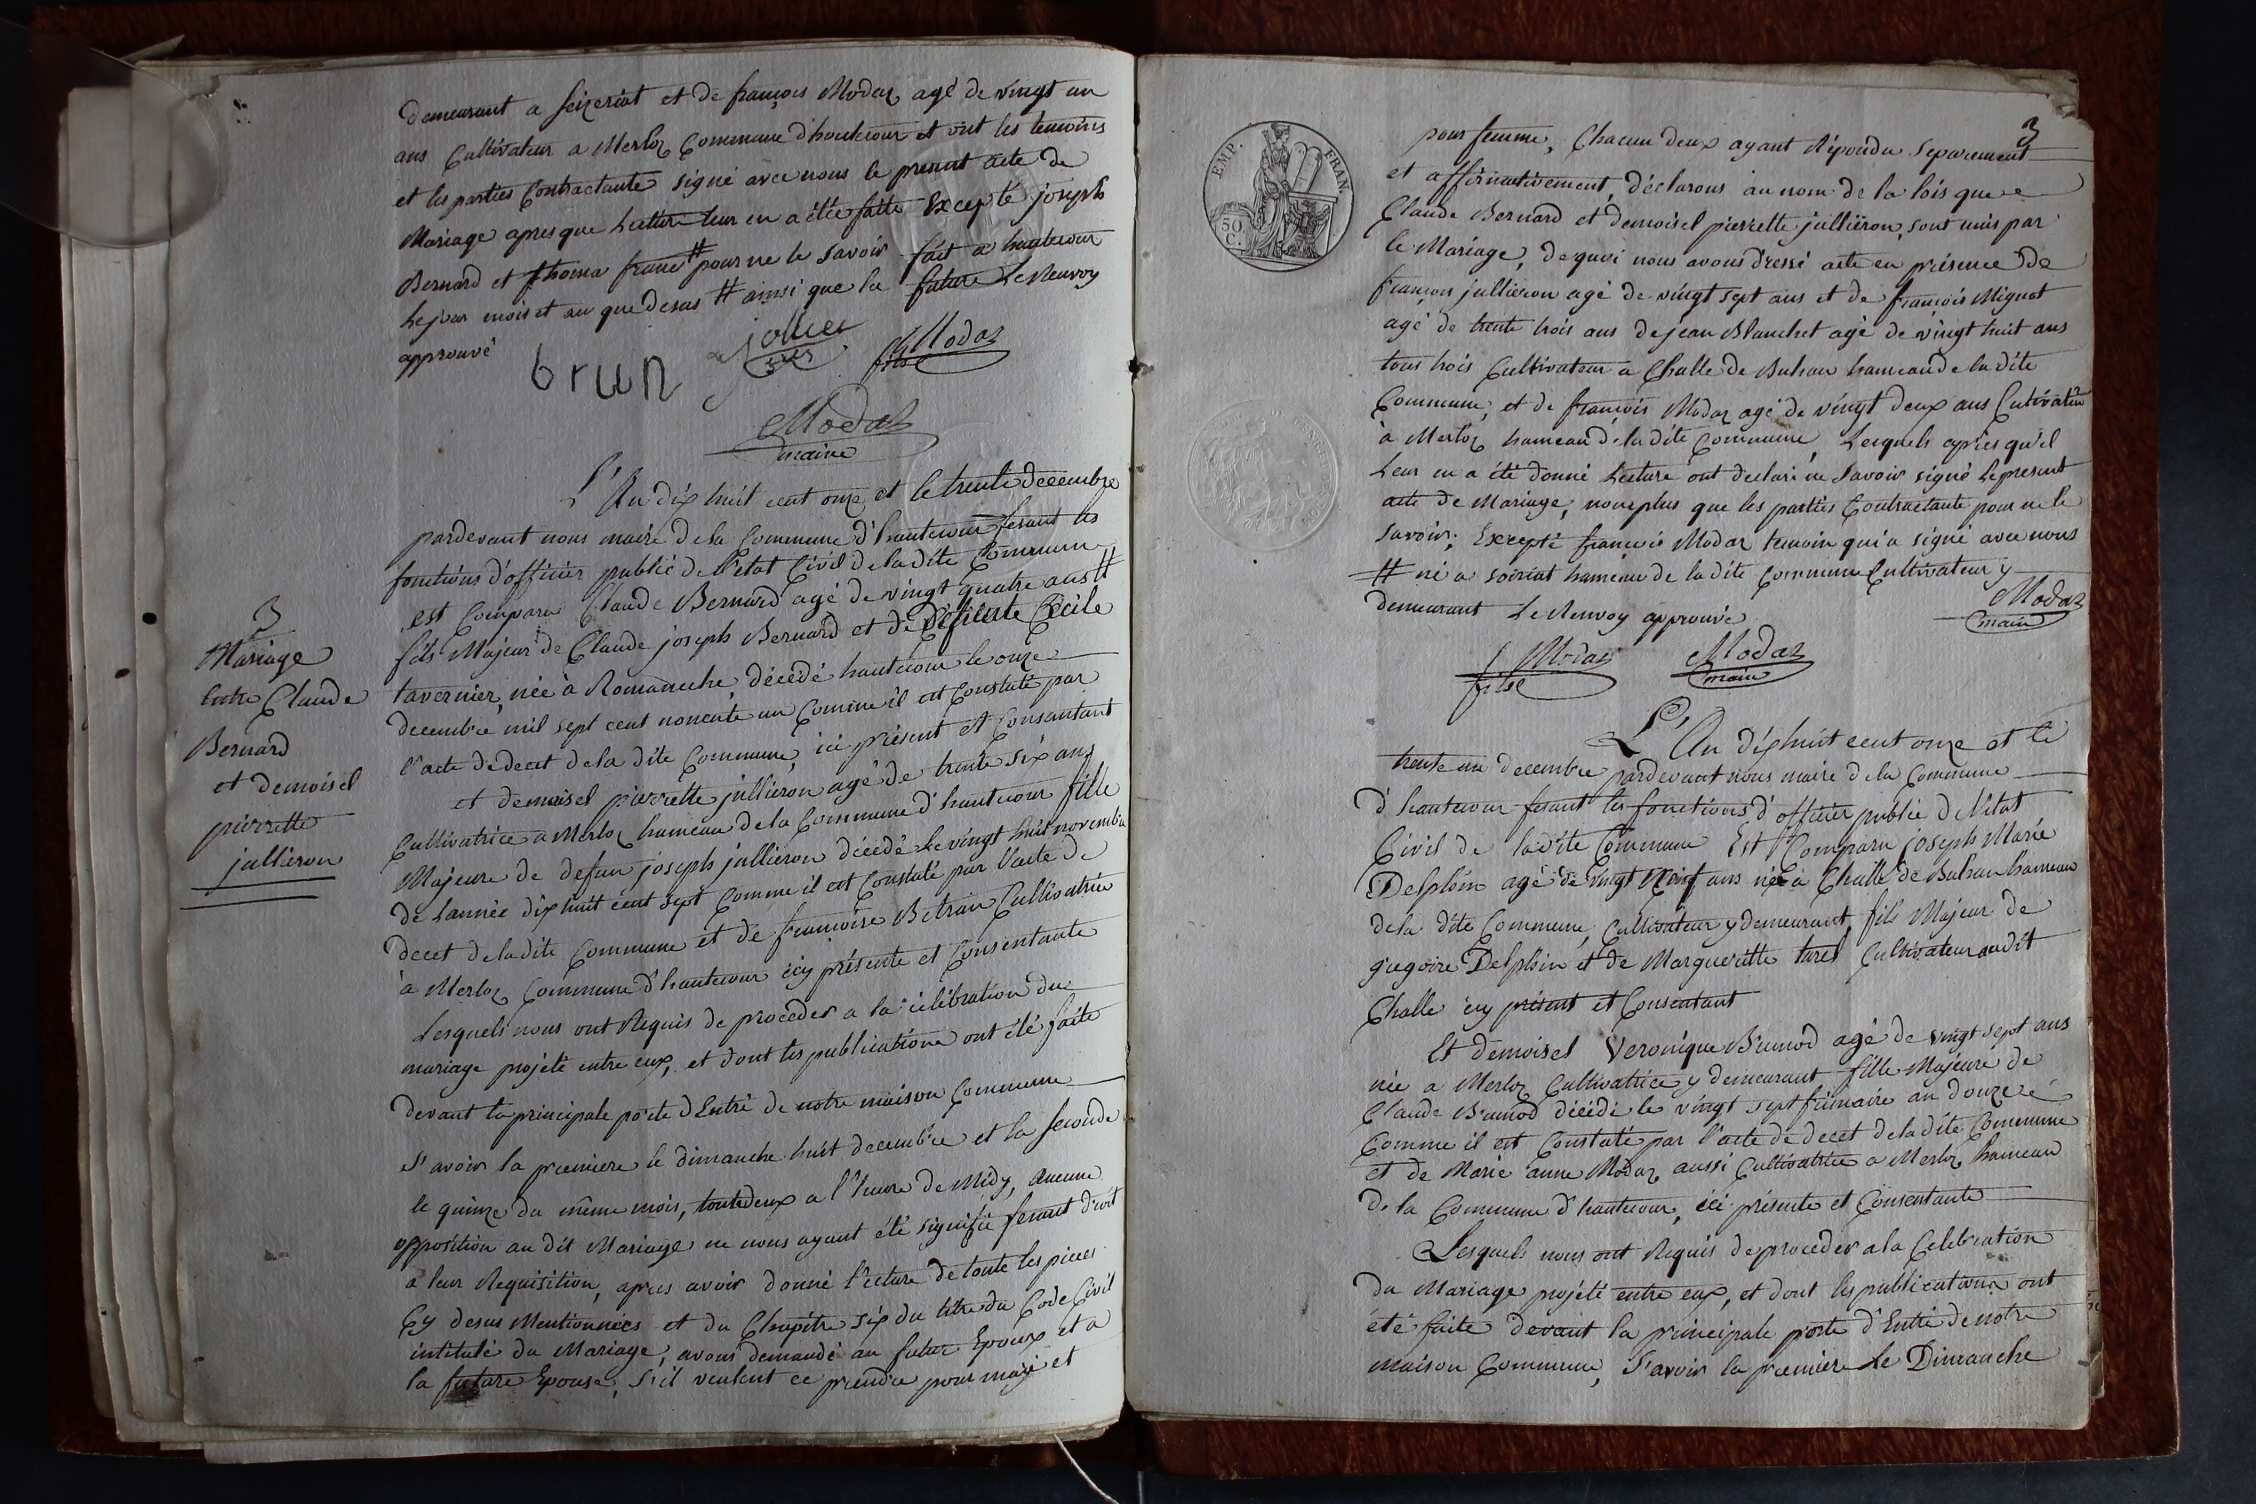 demeurant a seizeriat et de françois Modaz agé de vingt un
ans Cultivateur a Merloz Commune d'hautecour et ont les temoins
et les parties Contractante signé avec nous le present acte de
Mariage apres que Lecture leur en a étée faitte Excepté joseph
Bernard et thoma franc # pour ne le savoir fait a hautecour
Le jour mois et an que desus # ainsi que la future Le Renvoy
approuvé
brun jollier Modaz
fils
Modaz
maire
L'An dix huit cent onze et le trente decembre
pardevant nous maire de la Commune d'hautecour fesant les
fonctions d'officier public de l'etat Civil de la dite Commune
est Comparu Claude Bernard agé de vingt quatre ans #
fils Majeur de Claude joseph Bernard et de Défunte Cécile
tavernier, née à Romaneche, décédé hautecour le onze
decembre mil sept cent nonente un Comme il est Constaté par
l'acte de decet de la dite Commune, ici présent et Consantant
et demoisel pierrette jullieron agé de trente six ans
Cultivatrice a Merloz hameau de la Commune d'hautecour fille
Majeure de defun joseph jullieron décédé Le vingt huit novembre
de L'année dix huit cent sept Comme il est Constaté par l'acte de
decet de la dite Commune et de françoise Betrain Cultivatrice
à Merloz Commune d'hautecour icy présente et Consentante
Lesquels nous ont Requis de procéder a la célébration du
mariage projeté entre eux, et dont les publications ont été faite
devant la principale porte d'Entré de notre maison Commune
S'avoir la premiere le dimanche huit decembre et la seconde
le quinze du même mois, toute deux a l'heure de Midy, Aucune
opposition au dit Mariage ne nous ayant été signifié fesant droit
a leur Requisition, apres avoir donné l'ecture de toute les pieces
Cy desus Mentionnées et du Chapitre six du titre du Code Civil
intitulé du Mariage, avons demandé au futur Epoux et a
la future Epouse, s'il veulent ce prendre pour marié et
3
Mariage
Entre Claude
Bernard
et demoisel
pierrette
jullieron
3
EMP. FRAN.
50
C.
pour femme, Chacun deux ayant Répondu Separement
et affirmativement, déclarons au nom de la lois que
Claude Bernard et demoisel pierrette jullieron, sont unis par
le Mariage, de quoi nous avons dressé acte en présence de
françois jullieron agé de vingt sept ans et de françois Mignot
agé de trente trois ans de jean Blanchet agé de vingt huit ans
tous trois Cultivateur a Challe de Buhan hameau de la dite
Commune, et de françois Modaz agé de vingt deux ans Cutivateur
à Merloz hameau de la dite Commune, Lesquels après qu'il
Leur en a été donné Lecture ont declaré ne Savoir signé Le present
acte de Mariage, nonplus que les parties Contractante pour ne le
savoir, Excepté françois Modaz temoin qui a signé avec nous
# né a soiriat hameau de la dite Commune Cultivateur y
demeurant Le Renvoy approuvé
Modaz
maire
f Modaz
filse
Modaz
maire
L'An dix huit cent onze et le
trente un decembre pardevant nous maire de la Commune
d'hautecour fesant les fonctions d'officier public de l'état
Civil de la dite Commune Est Comparu joseph Marie
Delphin agé de vingt Neuf ans née à Challe de Buhan hameau
de la dite Commune, Cultivateur y demeurant, fils Majeur de
gregoire Delphin et de Marguerite turel Cultivateur au dit
Challe icy présent et Consentant
Et demoisel Veronique Brunod agé de vingt sept ans
née a Merloz Cultivatrice y demeurant fille Majeure de
Claude Brunod décédé le vingt sept frimaire an douze
Comme il est Constaté par l'acte de decet de la dite Commune
et de Marie anne Modaz aussi Cultivatrice a Merloz hameau
de la Commune d'hautecour, ici présente et Consentante
Lesquels nous ont Requis de proceder a la Celebration
du Mariage projété entre eux, et dont les publications ont
été faite devant la principale porte d'Entré de notre
maison Commune, S'avoir la premiere Le Dimanche